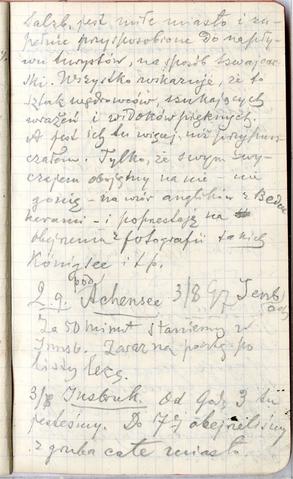 Salzb. jest miłe miasto i zu-
pełnie przysposobione do napły-
wu turystów, na sposób szwajcar-
ski. Wszystko wskazuje, że to
szlak wędrowców, szukających
wrażeń i widoków pięknych.
A jest ich tu więcej, niż przypusz-
czałem. Tylko, że swym zwy-
czajem obojętny na nie - nie
gonię - na wzór anglików z Bedae-
kerami - i poprzestaję na
obejrzeniu z fotografii takich
Königsee i t.p.
pod
2 g. Achensee 3/8 Jenb
Za 50 minut staniemy w
Innsb. Zaraz na pocztę po
listy lecę.
3/8 Insbruk. Od Godz 3 tu
jesteśmy. Do 7ej obejrzeliśmy
z gruba całe miasto.